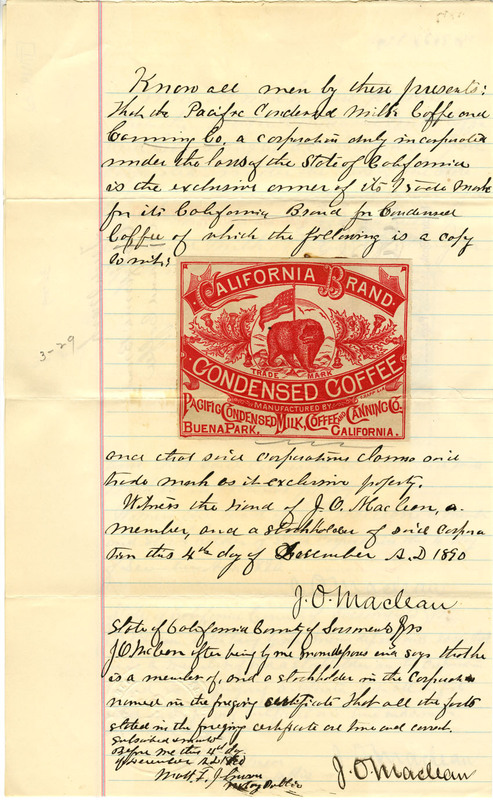 Know all men by these presents:
that the Pacific Condensed Milk Coffe and
Canning Co. a corporation duly incorporated
under the laws of the State of California
is the exclusive owner of its Trade Mark
for its California Brand for Condensed
Coffee of which the following is a copy
to wit:
CALIFORNIA BRAND.
TRADE MARK
CONDENSED COFFEE
MANUFACTURED BY
PACIFIC CONDENSED MILK, COFFEE AND CANNING CO.
BUENA PARK, CALIFORNIA.
3-29
and that said corporation claims said
trade mark as it exclusive property.
Witness the hand of J. O. Maclean, a
member, and a stockholder of said corpora
tion this 4th day of December A.D 1890
J. O. Maclean
State of California County of Sacramento ss
J O Mclean after being by me sworn says that he
is a member of, and a stockholder in the corporation
named in the foregoing certificate that all the facts
stated in the foregoing certificate are true and correct.
Subscribed & sworn to
Before me this 4th day
of December A.D 1890
Matt. F. Johnson
Notary Public
J. O. Maclean